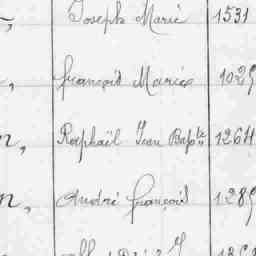 Joseph Marie 1531
François Marie 102
n, Raphaël Jean Bapte 1264
n, André François 128